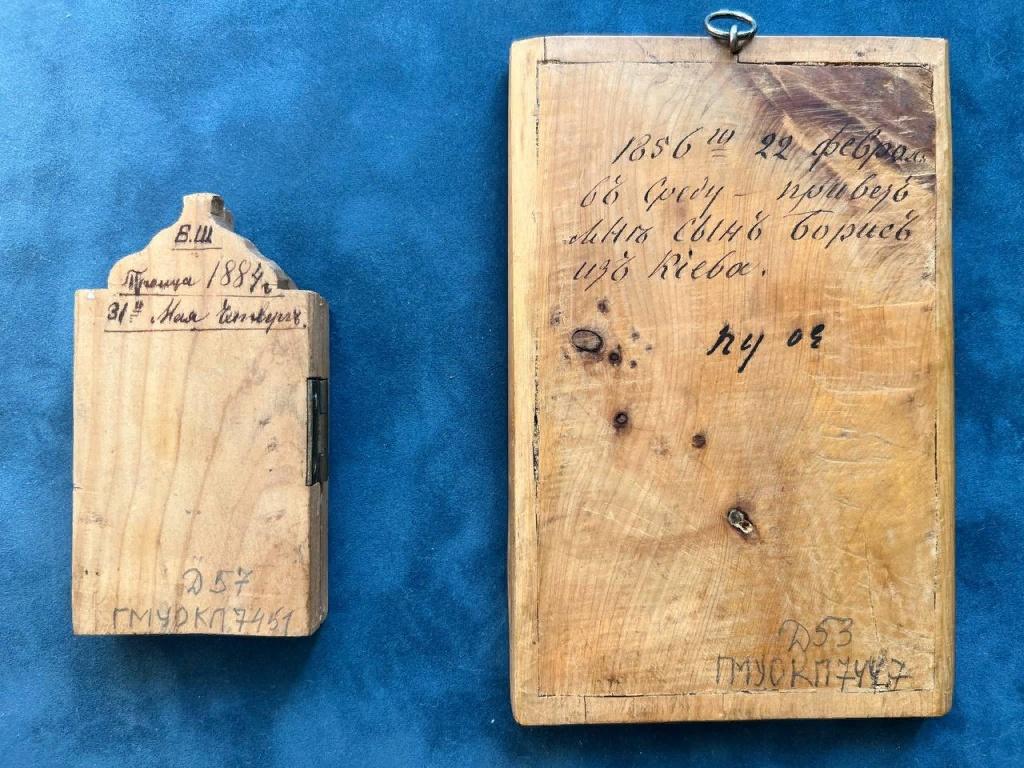 Б.Ш
Троица 1884 г
31 го Мая Четвергъ.
Д 57
ГМУО КП 7451
1856 го 22 Февраля
въ Среду - привезъ
мнѣ сынъ Борисъ
изъ Кіева.
Д 53
ГМУО КП 7447